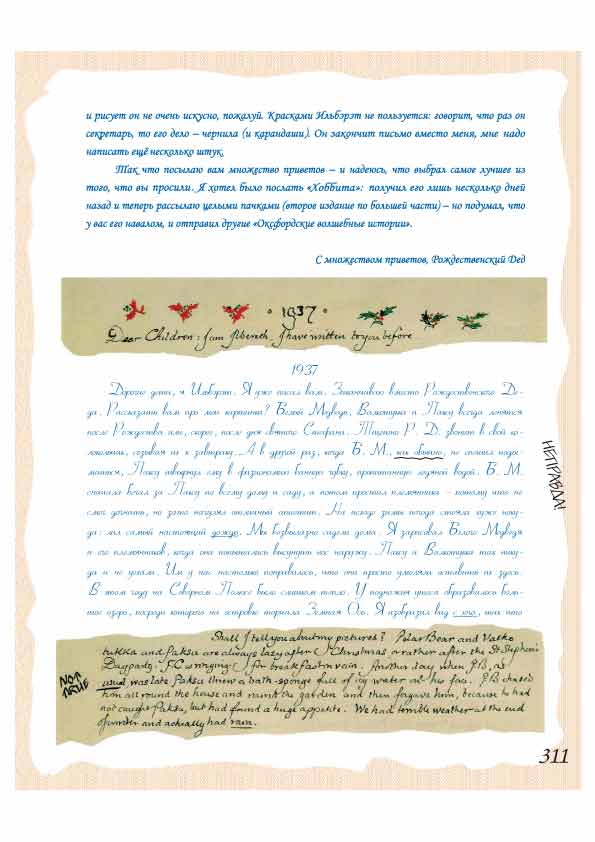 и рисует он не очень искусно, пожалуй. Красками Ильбэрэт не пользуется: говорит, что раз он
секретарь, то его дело – чернила (и карандаши). Он закончит письмо вместо меня, мне надо
написать ещё несколько штук.
Так что посылаю вам множество приветов – и надеюсь, что выбрал самое лучшее из
того, что вы просили. Я хотел было послать «Хоббита»: получил его лишь несколько дней
назад и теперь рассылаю целыми пачками (второе издание по большей части) – но подумал, что
у вас его навалом, и отправил другие «Оксфордские волшебные истории».
С множеством приветов, Рождественский Дед
· 1937 ·
Dear Children: I am Ilbereth. I have written to you before
1937
Дорогие дети, я Ильбэрэт. Я уже писал вам. Заканчиваю вместо Рождественского Де-
да. Рассказать вам про мои картинки? Белой Медведь, Валкотукка и Паксу всегда ленятся
после Рождества или, скорее, после дня святого Стефана. Тщетно Р. Д. звонит в свой ко-
локольчик, созывая их к завтраку. А в другой раз, когда Б. М., как обычно, не спешил подни-
маться, Паксу швырнул ему в физиономию банную губку, пропитанную ледяной водой. Б. М.
сначала бегал за Паксу по всему дому и саду, а потом простил племянника – потому что не
смог догнать, но зато нагулял отличный аппетит. На исходе зимы погода стояла хуже неку-
да: лил самый настоящий дождь. Мы безвылазно сидели дома. Я зарисовал Белого Медведя
и его племянников, когда они попытались высунуть нос наружу. Паксу и Валкотукка так нику-
да и не уехали. Им у нас настолько понравилось, что они просто умоляли оставить их здесь.
В том году на Северном Полюсе было слишком тепло. У подножия утёса образовалось боль-
шое озеро, посреди которого на островке торчала Земная Ось. Я изобразил вид с юга, так что
НЕПРАВДА!
Shall I tell you about my pictures? Polar Bear and Valko
tukka and Paksu are always lazy after Christmas or rather after the St Stephen's
Day party. F.C. is ringing for breakfast in vain. Another day when P.B., as
usual was late Paksu threw a bath-sponge full of icy water on his face. P.B. chased
him all round the house and round the garden and then forgave him, because he had
not caught Paksu, but had found a huge appetite. We had terrible weather at the end
of winter and actually had rain.
NOT
TRUE
311